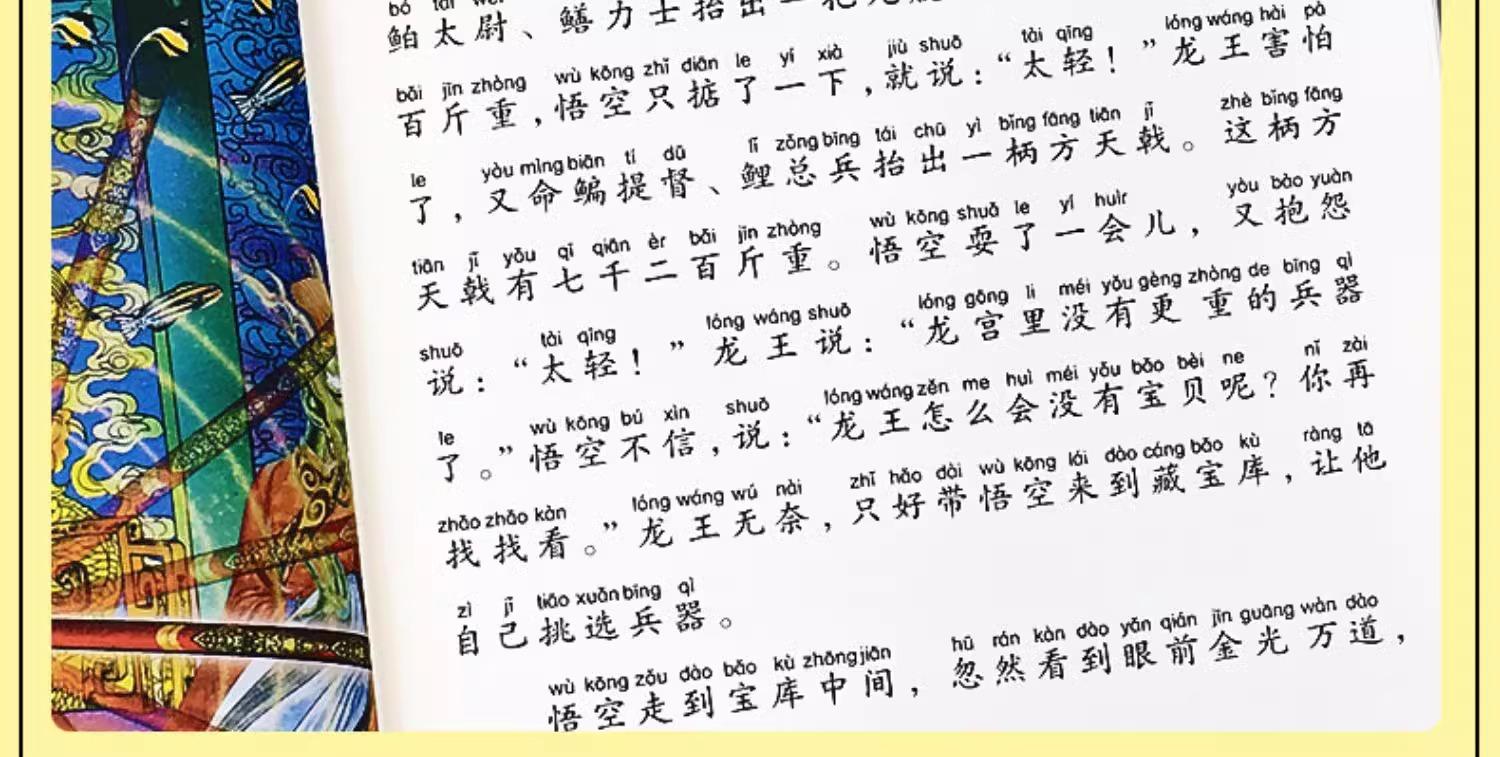 bó tài
鲌太尉、鳝力士抬出一
bǎi jīn zhòng wù kōng zhǐ diān le yí xià jiù shuō tài qīng lóng wáng hài pà
百斤重，悟空只掂了一下，就说：“太轻！”龙王害怕
le yòu mìng biān tí dū lǐ zǒng bīng tái chū yì bǐng fāng tiān jǐ zhè bǐng fāng
了，又命鳊提督、鲤总兵抬出一柄方天戟。这柄方
tiān jǐ yǒu qī qiān èr bǎi jīn zhòng wù kōng shuǎ le yí huìr yòu bào yuàn
天戟有七千二百斤重。悟空耍了一会儿，又抱怨
shuō tài qīng lóng wáng shuō lóng gōng li méi yǒu gèng zhòng de bīng qì
说：“太轻！”龙王说：“龙宫里没有更重的兵器
le wù kōng bú xìn shuō lóng wáng zěn me huì méi yǒu bǎo bèi ne nǐ zài
了。”悟空不信，说：“龙王怎么会没有宝贝呢？你再
zhǎo zhǎo kàn lóng wáng wú nài zhǐ hǎo dài wù kōng lái dào cáng bǎo kù ràng tā
找找看。”龙王无奈，只好带悟空来到藏宝库，让他
zì jǐ tiāo xuǎn bīng qì
自己挑选兵器。
wù kōng zǒu dào bǎo kù zhōng jiān hū rán kàn dào yǎn qián jīn guāng wàn dào
悟空走到宝库中间，忽然看到眼前金光万道，